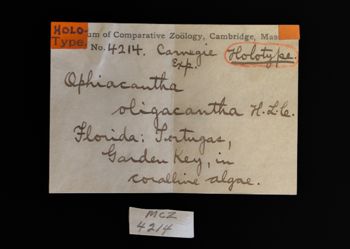 HOLO-
Type.
um of Comparative Zoölogy, Cambridge, Mass
No. 4214. Carnegie Holotype.
Exp.
Ophiacantha
oligacantha H.L.C.
Florida: Tortugas,
Garden Key, in
coralline algae.
MCZ
4214